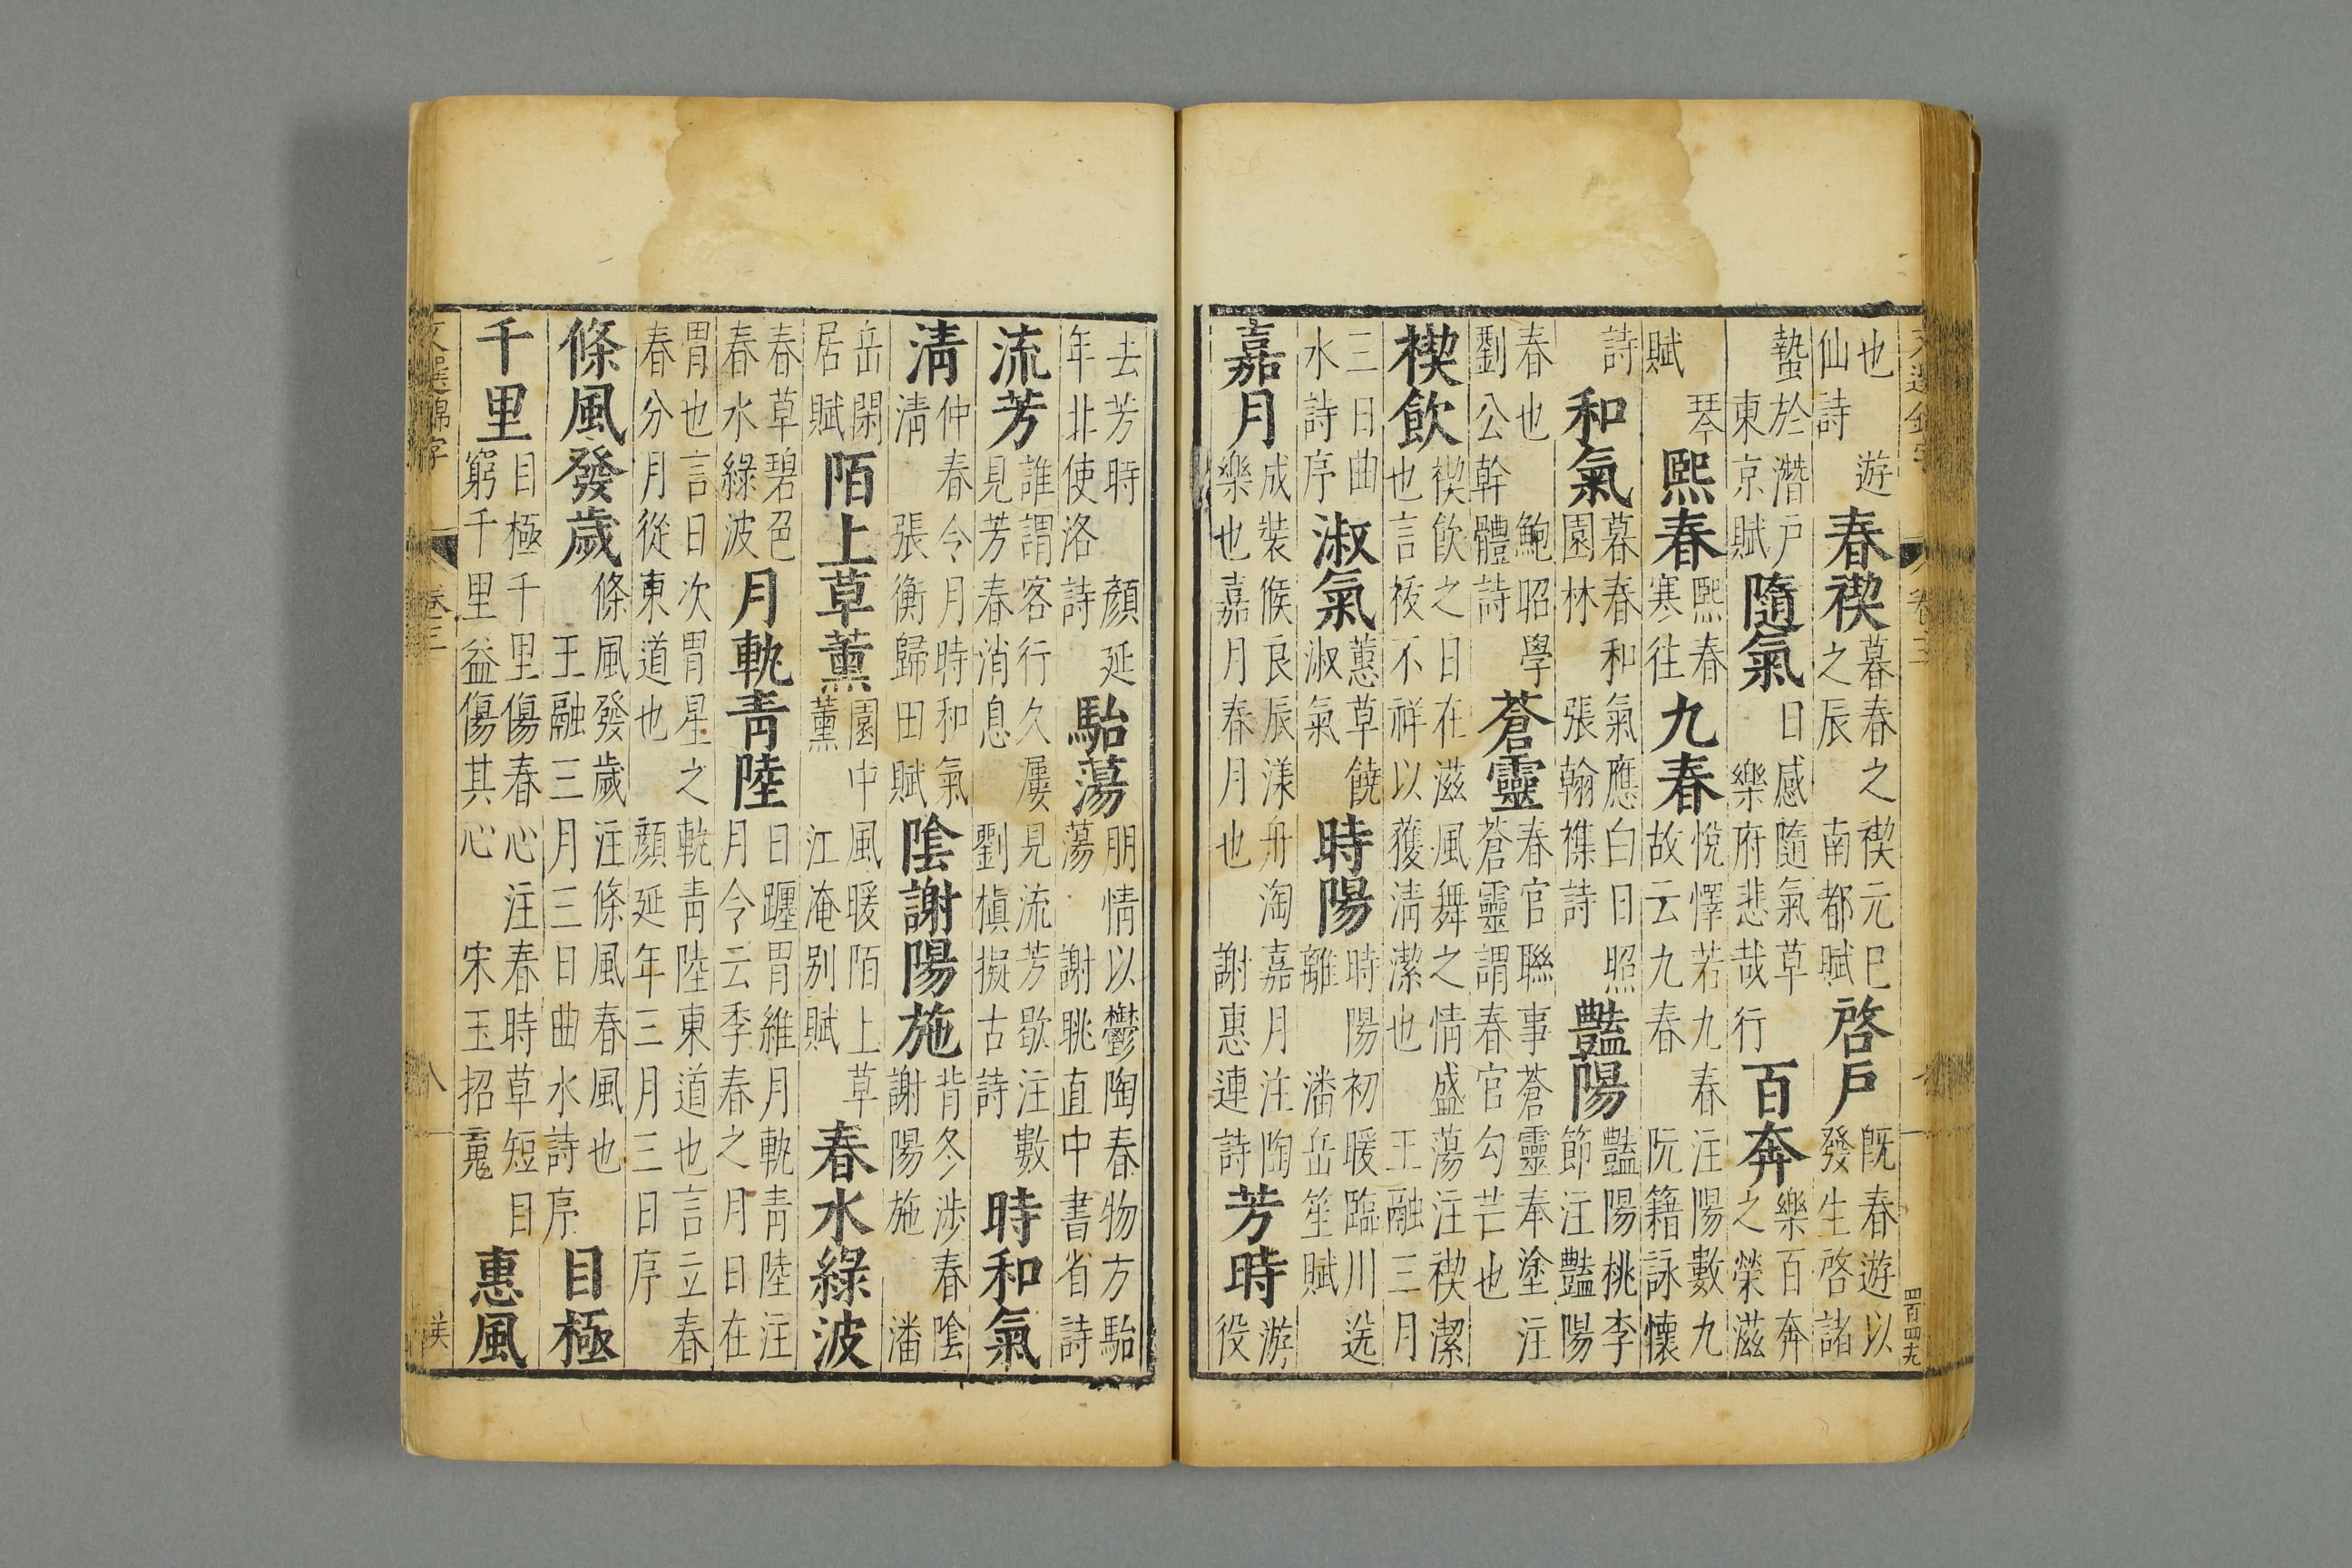 文選錦字 卷三 四百四九
也 遊仙詩 春禊 暮春之禊元巳之辰 南都賦 啓戶 既春遊以發生啓諸
蟄於潛戶 東京賦 隨氣 日感隨氣草 樂府悲哉行 百奔 樂百奔之榮滋
琴賦 熙春 熙春寒往 九春 悅懌若九春注陽數九故云九春 阮籍詠懷
詩 和氣 暮春和氣應白日照園林 張翰襍詩 豔陽 豔陽桃李節注豔陽
春也 鮑昭學劉公幹體詩 蒼靈 春官聯事蒼靈奉塗注蒼靈謂春官勾芒也
禊飲 禊飲之日在滋風舞之情盛蕩注禊潔也言祓不祥以獲清潔也 王融三月
三日曲水詩序 淑氣 蕙草饒淑氣 時陽 時陽初暖臨川送離 潘岳笙賦
嘉月 成裝候良辰漾舟淘嘉月注陶樂也嘉月春月也 謝惠連詩 芳時 游役
去芳時 顏延年北使洛詩 駘蕩 朋情以鬱陶春物方駘蕩 謝眺直中書省詩
流芳 誰謂客行久屢見流芳歇注數見芳春消息 劉楨擬古詩 時和氣
清 仲春令月時和氣清 張衡歸田賦 陰謝陽施 背冬涉春陰謝陽施 潘
岳閑居賦 陌上草薰 園中風暖陌上草薰 江淹别賦 春水綠波
春草碧色春水綠波 月軌青陸 日躔胃維月軌青陸注月令云季春之月日在
胃也言日次胃星之軌青陸東道也言立春春分月從東道也 顏延年三月三日序
條風發歲 條風發歲注條風春風也 王融三月三日曲水詩序 目極
千里 目極千里傷春心注春時草短目窮千里益傷其心 宋玉招䰟 惠風
文選錦字 卷三 八